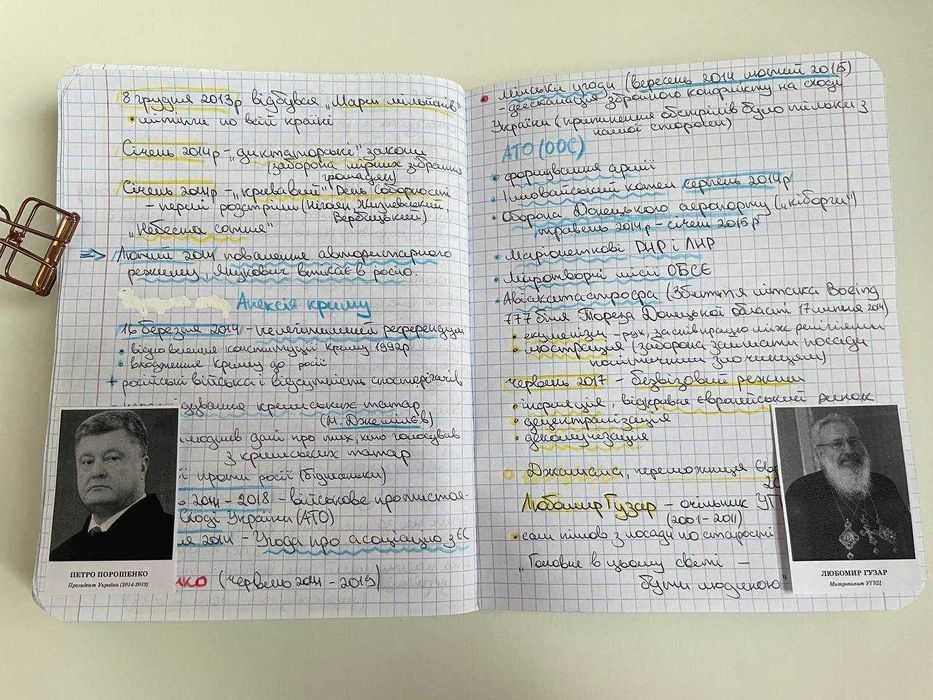 8 грудня 2013р відбувся „Марш мільйонів"
• мітинги по всій країні
Січень 2014р - „диктаторські" закони
(заборона мирних зібрань
громадян)
Січень 2014р - „кривавий" День Соборності
- перші розстріли (Нігоян, Жизневський,
Вербицький)
„Небесна сотня"
⇒ Лютий 2014 повалення авторитарного
режиму, Янукович втікає в росію.
Анексія криму
16 березня 2014 - нелегітимний референдум
• відновлення конституції Криму 1992р
• входження Криму до росії
+ російські війська і відсутність спостерігачів
кримських татар
(М. Джемілєв)
дані про тих, хто голосував
з кримських татар
ї проти росії (будинки)
2014 - 2018 - військове протистоя-
Сході України (АТО)
я 2014 - Угода про асоціацію з ЄС
нко (червень 2014 - 2019)
ПЕТРО ПОРОШЕНКО
Президент України (2014-2019)
• Мінські угоди (вересень 2014 лютий 2015)
- деескалація збройного конфлікту на сході
України (припинення обстрілів було тільки з
нашої сторони)
АТО (ООС)
• формування армії
• Іловайський котел серпень 2014р
• Оборона Донецького аеропорту („кіборги")
травень 2014р - січень 2015р
• Маріонеткові ДНР і ЛНР
• Миротворчі місії ОБСЄ
• Авіакатастрофа (збиття літака Boeing
777 біля Тореза Донецької області 17 липня 2014)
• екуменізм - рух, за співпрацю між релігіями
• люстрація (заборона займати посади
політичним злочинцям)
червень 2017 - безвізовий режим
• інфляція, відкрився європейський ринок
• децентралізація
• декомунізація
Джамала, переможниця
Любомир Гузар - очільник УГ
(2001 - 2011)
• сам пішов з посади по старості
„Головне в цьому світі -
бути людиною
ЛЮБОМИР ГУЗАР
Митрополит УГКЦ